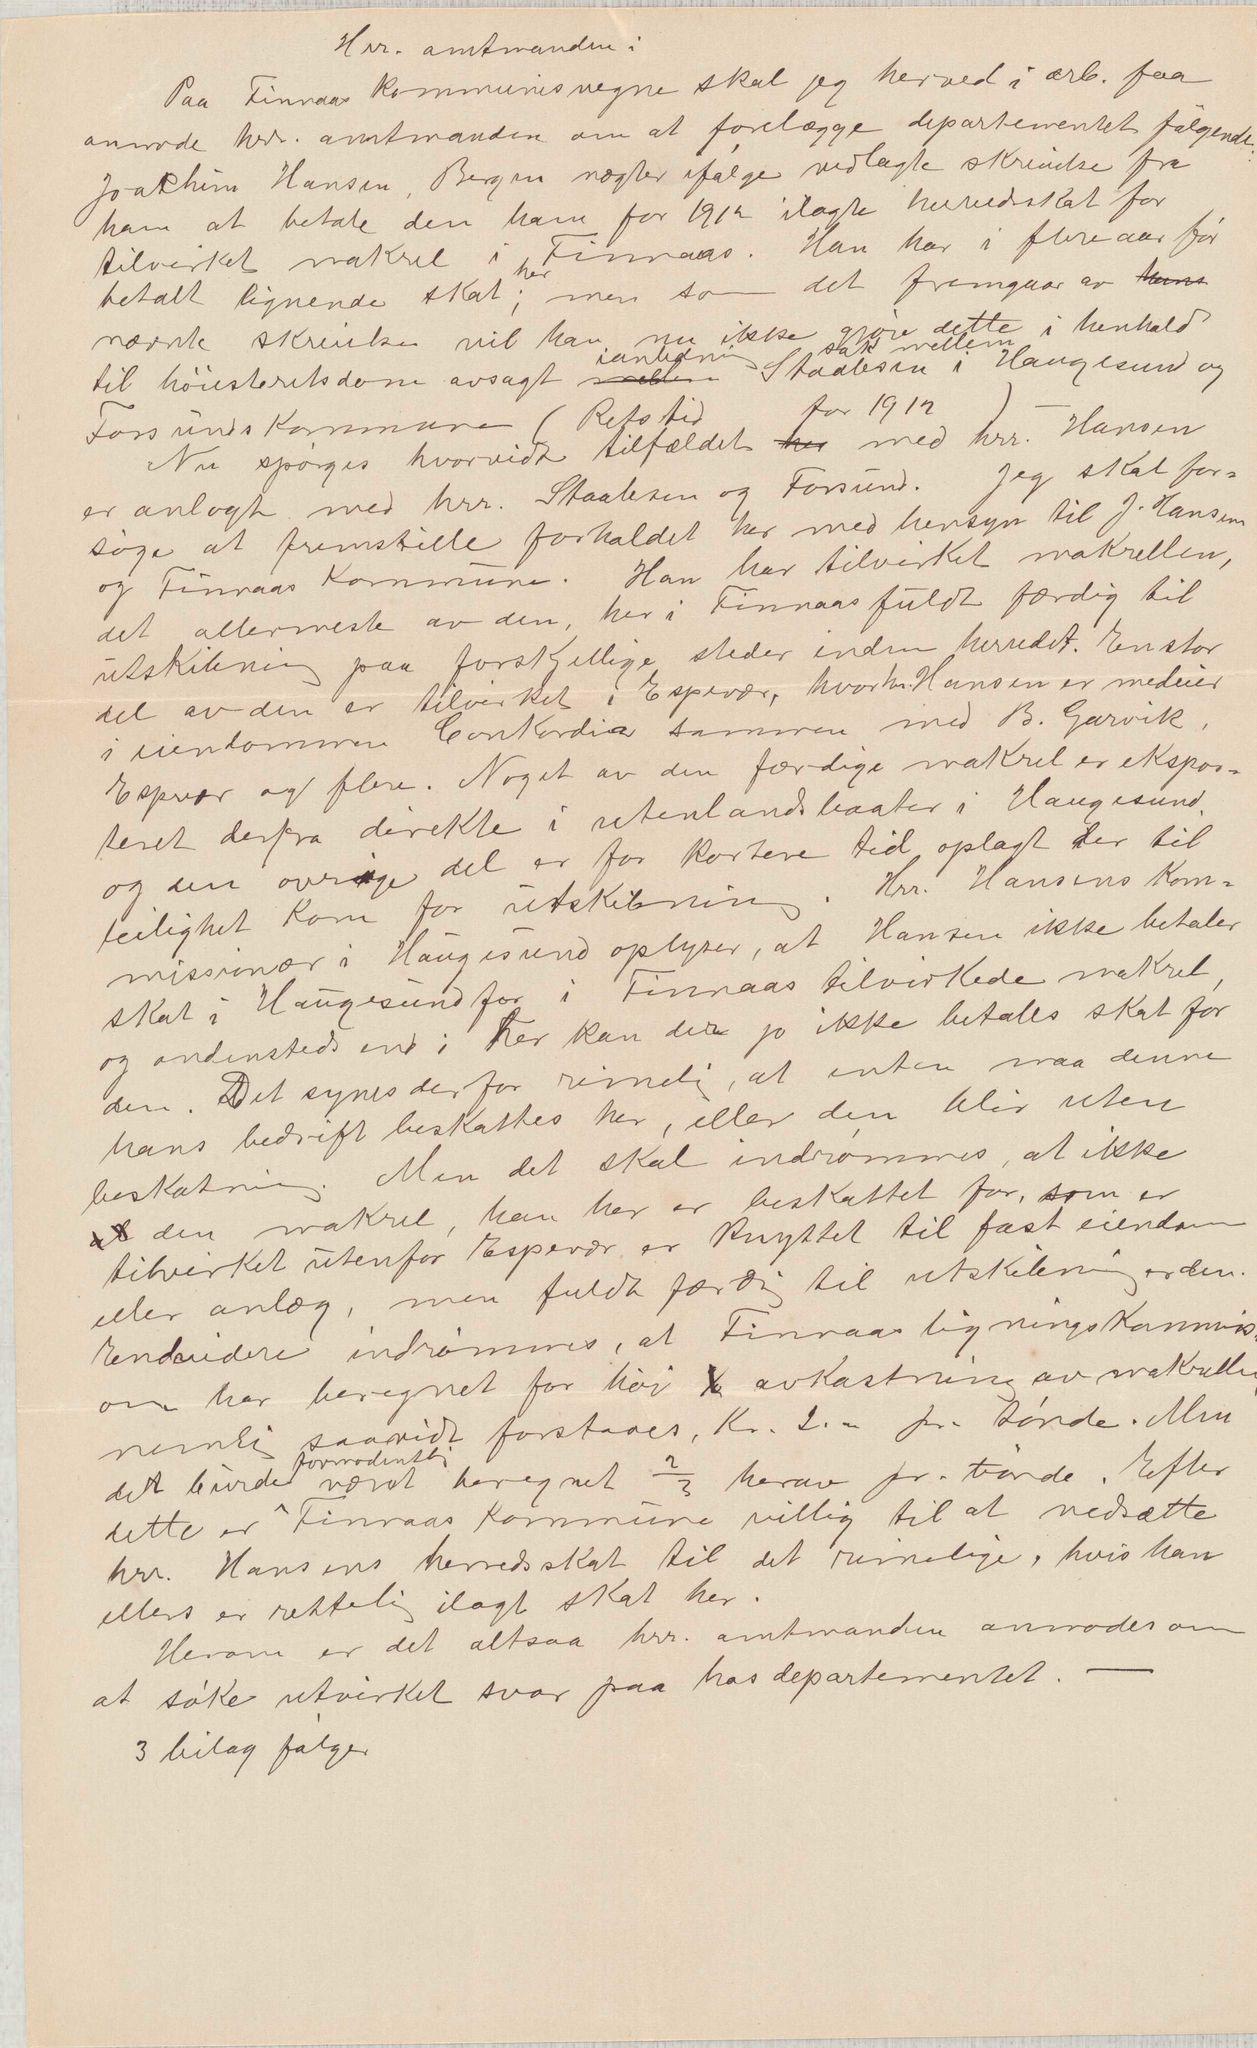 Hrr. amtmanden i
Paa Finnaas kommunes vegne skal jeg herved i ærb. faa
anmode hrr. amtmanden om at forelægge departementet følgende:
Joakhim Hansen, Bergen nægter ifølge vedlagte skrivelse fra
ham at betale den ham for 1912 ilagte herredsskat for
tilvirket makrel i Finnaas. Han har i flere aar før
betalt lignende skat her; men som det fremgaar av hans
nævnte skrivelse vil han nu ikke gjøre dette i henhold
til høiesteretsdom avsagt mellem i anledning sak mellem Staalesen i Haugesund og
Forsunds kommune (Retstid for 1912) —
Nu spørges hvorvidt tilfældet her med hrr. Hansen
er anlogt med hrr. Staalesen og Forsund. Jeg skal for-
søge at fremstille forholdet her med hensyn til J. Hansen
og Finnaas kommune. Han har tilvirket makrellen,
det allermeste av den, her i Finnaas fuldt færdig til
utskibning paa forskjellige steder inden herredet. En stor
del av den er tilvirket i Espevær, hvor hr. Hansen er medeier
i eiendommen Conkordia sammen med B. Garvik,
Espevær og flere. Noget av den færdige makrel er ekspor-
teret derfra direkte i utenlandsbaater i Haugesund
og den øvrige del er for kortere tid oplagt der til
leilighet kom for utskibning. Hrr. Hansens kom-
missionær i Haugesund oplyser, at Hansen ikke betaler
skat i Haugesund for i Finnaas tilvirkede makrel,
og andensteds end i her kan der jo ikke betales skat for
den. Det synes derfor rimelig, at enten maa denne
hans bedrift beskattes her, eller den blir uten
beskatning. Men det skal indrømmes, at ikke
al den makrel, han her er beskattet for, som er
tilvirket utenfor Espevær er knyttet til fast eiendom
eller anlæg, men fuldt færdig til utskibning er den.
Endvidere indrømmes, at Finnaas ligningskommis-
on har beregnet for høi avkastning av makrellen
nemlig saavidt forstaaes, Kr. 2.- pr. tønde. Men
det burde formodentlig været beregnet 2/3 herav pr. tønde. Efter
dette er Finnaas kommune villig til at nedsætte
hrr. Hansens herredsskat til det rimelige, hvis han
ellers er rettelig ilagt skat her.
Herom er det altsaa hrr. amtmanden anmodes om
at søke utvirket svar paa hos departementet. —
3 bilag følger